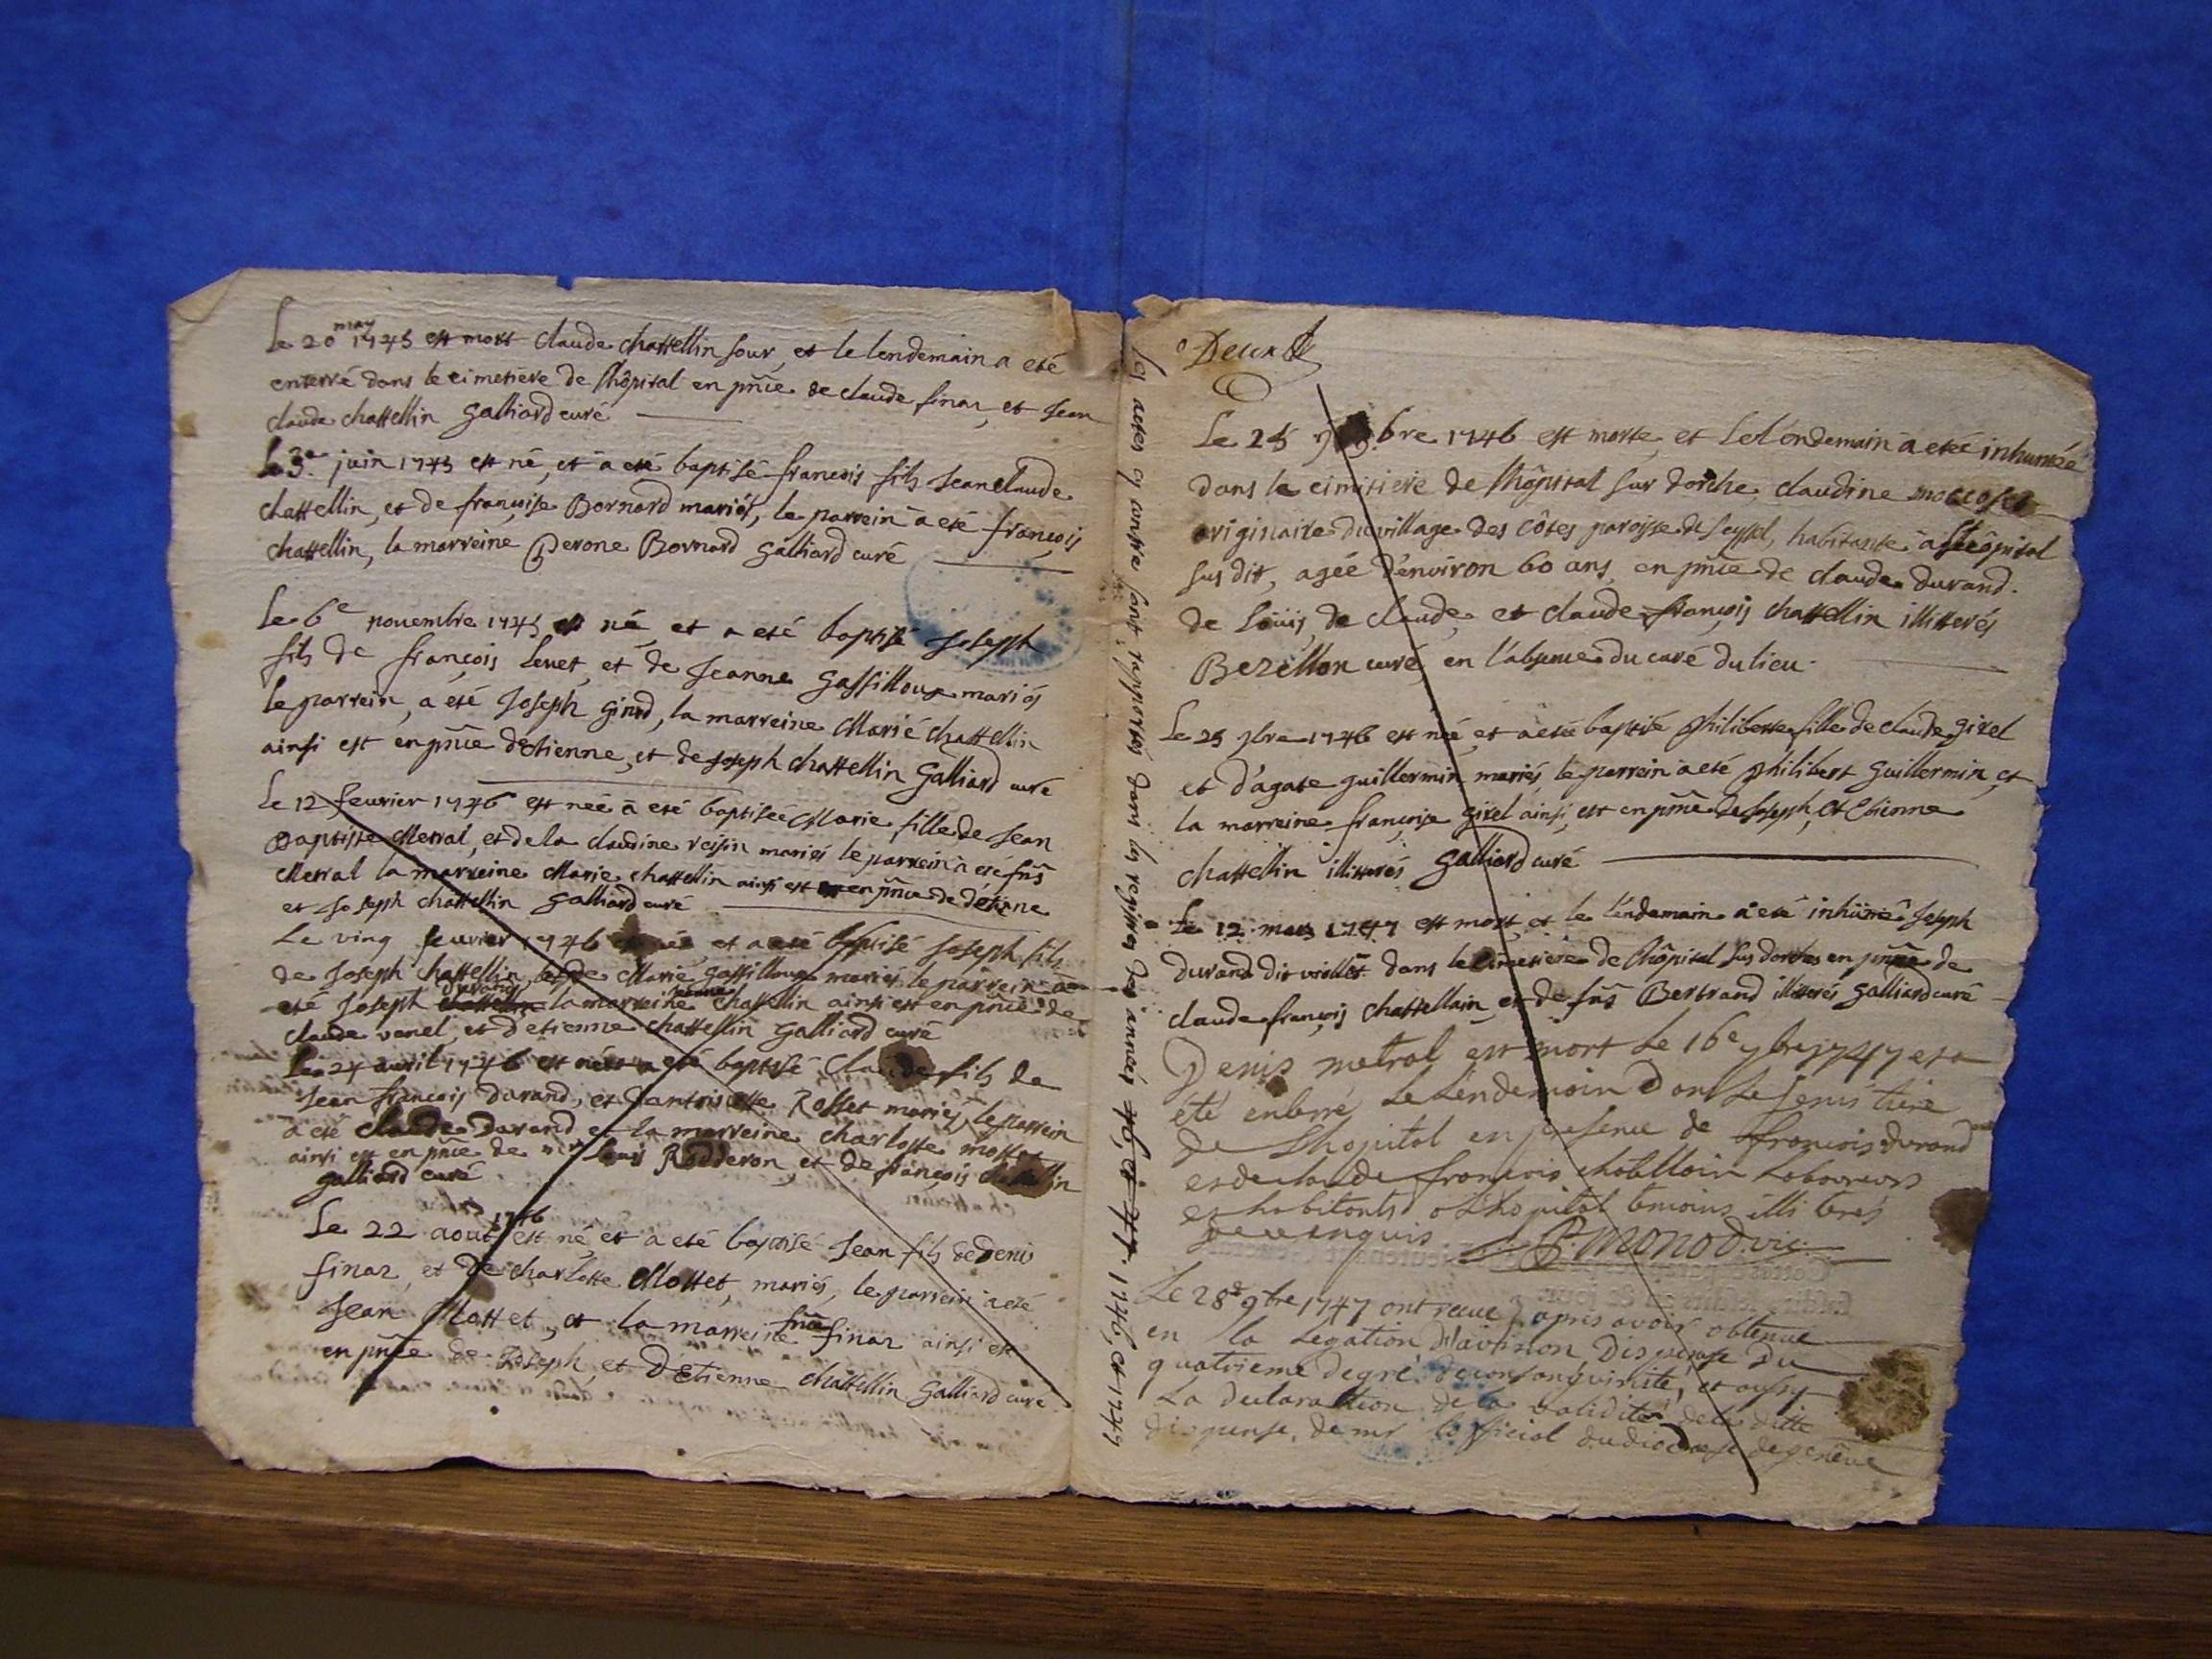 Le 20 may 1745 est mort claude chattellin sour, et le lendemain a eté
enterré dans le cimetiere de lhôpital en pnce de claude finaz, et Jean
claude chattellin galliard curé
Le 3e juin 1745 est né, et a eté baptisé francois fils Jeanclaude
chattellin, et de françoise Bornard mariés, le parrein a eté françois
chattellin, la marreine Perone Bornard galliard curé
Le 6e novembre 1745 est né et a eté baptisé Joseph
fils de françois Levet, et de Jeanne gassilloux mariés
le parrein, a eté Joseph girod, la marreine Marie chattellin
ainsi est en pnce detienne, et de Joseph chattellin galliard curé
Le 12 feurier 1746 est neé a eté baptiseé Marie fille de Jean
Baptiste Merral, et de la claudine ressin mariés le parrein a eté fns
Merral la marreine Marie chattellin ainsi est en pnce de detiene
et Joseph chattellin galliard curé
Le ving feurier 1746 est né, et a eté baptisé Joseph fils
de Joseph chattellin, et de Marie gassilloux mariés le parrein a
eté Joseph durand la marreine chattellin ainsi est en pnce de
claude vanel, et detienne chattellin galliard curé
Le 24 auril 1746 est né et a eté baptisé Claude fils de
Jean françois Durand, et dantoinette Rosset mariés, le parrein
a eté claude Durand et la marreine charlotte mottet
ainsi est en pnce de mr Louis Rodderon, et de françois chattellin
galliard curé
Le 22 aout 1746 est né et a eté baptisé Jean fils de Denis
finaz, et de charlotte Mottet, mariés, le parrein a eté
Jean Mottet, et la marreine fnce finaz ainsi est
en pnce de Joseph, et Detienne chattellin galliard curé
Les actes cy contre sont rapportés dans les registres des années 1746, et 1747
Deux
Le 25 bre 1746 est morte, et Le lendemain a eteé inhumée
dans le cimitiere de lhôpital sur dorche, claudine
originaire du village des côtes paroisse de seyssel, habitante a lhôpital
sus dit, ageé d'environ 60 ans, en pnce de claude durand.
de Loüis, de claude, et claude françois chattellin illitterés
Bezillon curé en l'absence du curé du lieu.
Le 25 9bre 1746 est neé et a eteé baptisé philiberte fille de claude girel
et d'agate guillermin mariés, le parrein a eté philibert guillermin, et
la marreine françoise girel ainsi est en pnce de Joseph, et Etienne
chattellin illitterés galliard curé
Le 12 mars 1747 est mort, et le lendemain a eté inhumé Joseph
durand dit viollet dans le cimetiere de lhôpital sus dorches en pnce de
claude françois chattellain, et de fns Bertrand illiterés galliard curé
Denis metral est mort Le 16e 9bre 1747 et a
été enterré Le Lendemoin Dans Le Semistiere
de Lhopital en presence de françois durand
et de claude françois chatelloin Laboureurs
et habitants a Lhopital temoins illiterés
de ce enquis P monod. vic.
Le 28e 9bre 1747 ont receue apres avoir obtenue
en la Legation d'avinion, Dispense Du
quatrieme degré de consanguinité, et aussy
La Declarattion de la validité dela ditte
dispense, de mr Lofficial du diocese de geneve